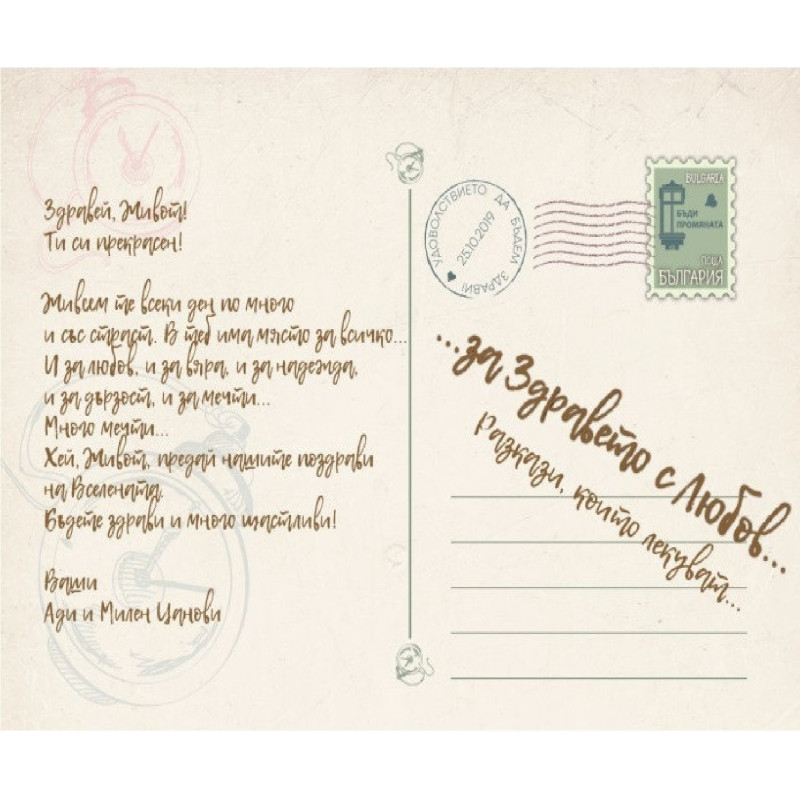 Здравей, Живот!
Ти си прекрасен!
Живеем те всеки ден по много
и със страст. В теб има място за всичко...
И за любов, и за вяра, и за надежда,
и за дързост, и за мечти...
Много мечти...
Хей, Живот, предай нашите поздрави
на Вселената.
Бъдете здрави и много щастливи!
Ваши
Ади и Милен Цанови
УДОВОЛСТВИЕТО ДА БЪДЕМ ЗДРАВИ!
25.10.2019
BULGARIA
БЪДИ
ПРОМЯНАТА
ПОЩА
БЪЛГАРИЯ
...за Здравето с Любов...
Разкази, които лекуват...